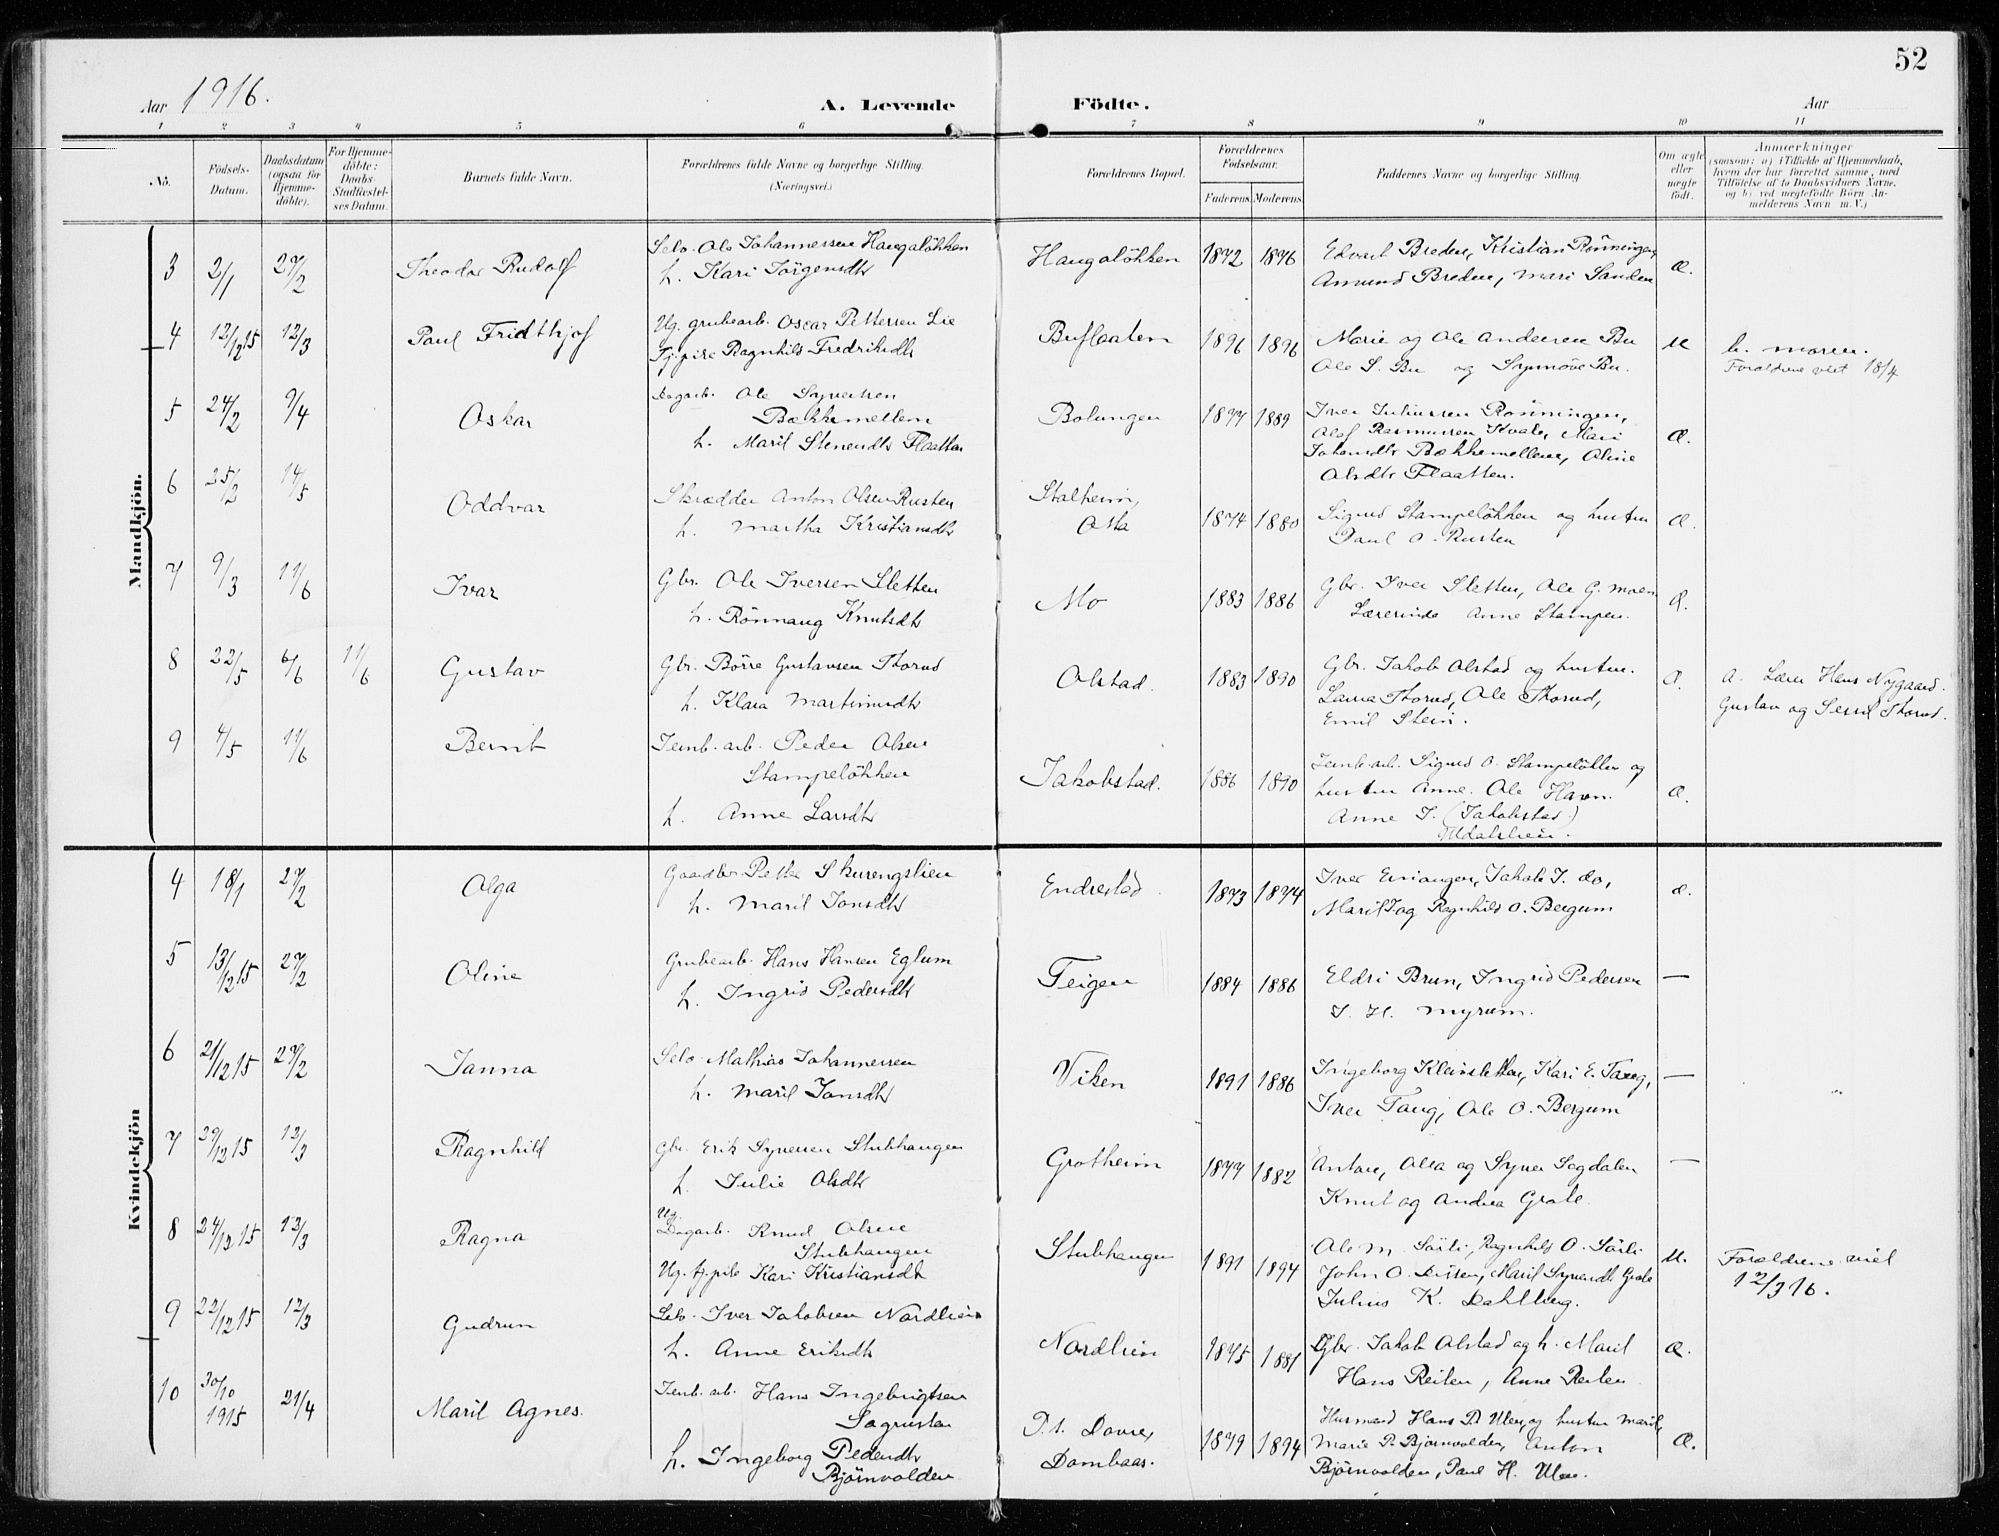 52
Aar 1916.
A. Levende Födte.
Aar
1 2 3 4 5 6 7 8 9 10 11
No.
Födsels-Datum.
Daabsdatum (ogsaa for Hjemmedöbte).
For Hjemmedöbte: Daabs-Stadfæstelses Datum.
Barnets fulde Navn.
Forældrenes fulde Navne og borgerlige Stilling.
(Næringsvei.)
Forældrenes Bopæl.
Forældrenes Födselsaar.
Faderens. Moderens.
Faddernes Navne og borgerlige Stilling.
Om ægte eller uægte födt.
Anmærkninger
(saasom: a) i Tilfælde af Hjemmedaab, hvem der har forrettet samme, med Tilföielse af to Daabsvidners Navne, og b) ved uægtefödte Börn Anmelderens Navn m. V.)
Mandkjön.
3 2/1 27/2 Theodor Rudolf
Selv. Ole Johannessen Haugalökken
h. Kari Jörgensdtr
Haugalökken 1872 1876
Edvart Breden, Kristian Rönningen,
Amund Breden, Mari Sanden
Æ.
4 12/12 15 12/3 Paul Fridthjof
Ug. grubearb. Oscar Pettersen Lie
Tj.pike Ragnhild Fredriksdtr
Buflaaten 1896 1896
Marie og Ole Andersen Bu
Ole S. Bu og Synnöve Bu.
U
b. moren.
Forældrene viet 18/4
5 24/2 9/4 Oskar
Dagarb. Ole Syversen
Bækkemellem
h. Marit Stenersdtr Flaatten
Bolungen 1877 1889
Iver Juliussen Rönningen,
Olaf Rasmussen Kvale, Mari
Johansdtr Bækkemellem, Oline
Olsdtr Flaatten.
Æ.
6 25/2 14/5 Oddvar
Skrædder Anton Olsen Rusten
h. Martha Kristiansdtr
Stalheim,
Otta
1874 1880
Sigurd Stampelökken og hustru
Paul O. Rusten
Æ.
7 9/3 11/6 Ivar
Gbr. Ole Iversen Sletten
h. Rönnaug Knutsdtr
Mo 1883 1886
Gbr. Iver Sletten, Ole G. Moen
Lærerinde Anne Stampen.
Æ.
8 22/5 6/6 11/6 Gustav
Gbr. Börre Gustavsen Thorud
h. Klara Martinusdtr
Olstad. 1883 1890
Gbr. Jakob Olstad og hustru.
Laura Thorud, Ole Thorud,
Emil Stein.
Æ.
a. Lærer Hans Nygaard.
Gustav og Thorud.
9 4/5 11/6 Bernt
Jernb. arb. Peder Olsen
Stampelökken
h. Anne Larsdtr
Jakobstad. 1886 1890
Jernb. arb. Sigurd O. Stampelökken og
hustru Anne. Ole Havn.
Anne J. (Jakobstad)
Æ.
Kvindekjön
4 18/1 27/2 Olga
Gaardbr. Petter Skurengslien
h. Marit Jonsdtr
Endrestad. 1873 1874
Iver Jakob I. do,
Marit J og Ragnhild O. Bergum
Æ.
5 13/12 15 27/2 Oline
Grubearb. Hans Hansen Eglum
h. Ingrid Pedersdtr
Teigen 1884 1886
Eldri Brun, Ingrid Pedersen
I. H. Myrum.
—
6 21/12 15 27/2 Janna
Selv. Mathias Johannessen
h. Marit Jonsdtr
Viken 1891 1886
Ingeborg Kleivsletten, Kari E. Taug,
Iver Taug, Ole O. Bergum
—
7 29/12 15 12/3 Ragnhild
Gbr. Erik Syversen Stubhaugen
h. Julie Olsdtr
Grotheim 1877 1882
Anton, Olea og Syver Sogdalen
Knut og Andrea Grote.
—
8 24/12 15 12/3 Ragna
Ug.
Dagarb. Knud Olsen
Stubhaugen
Ug. tj.pike Kari Kristiansdtr
Stubhaugen 1891 1894
Ole M. Sörli, Ragnhild O. Sörli
John O. Marit Syversdtr Grote
Julius K. Dahlberg.
U.
Forældrene viet
12/3 16.
9 22/12 15 12/3 Gudrun
Selv. Iver Jakobsen Nordlien
h. Anne Eriksdtr
Nordlien 1875 1881
Gbr. Jakob Olstad og h. Marit
Hans Reiten, Anne Reiten
Æ.
10 30/10 1915 21/4 Marit Agnes.
Jernb. arb. Hans Ingebrigtsen
Sogrusten
h. Ingeborg Pedersdtr
Bjørnvolden
P.t. Dovre,
Dombaas.
1879 1894
Husmand Hans P. Ulen, og hustru Marit,
Marie P. Bjørnvolden, Anton
Bjørnvolden, Paul H. Ulen.
Æ.